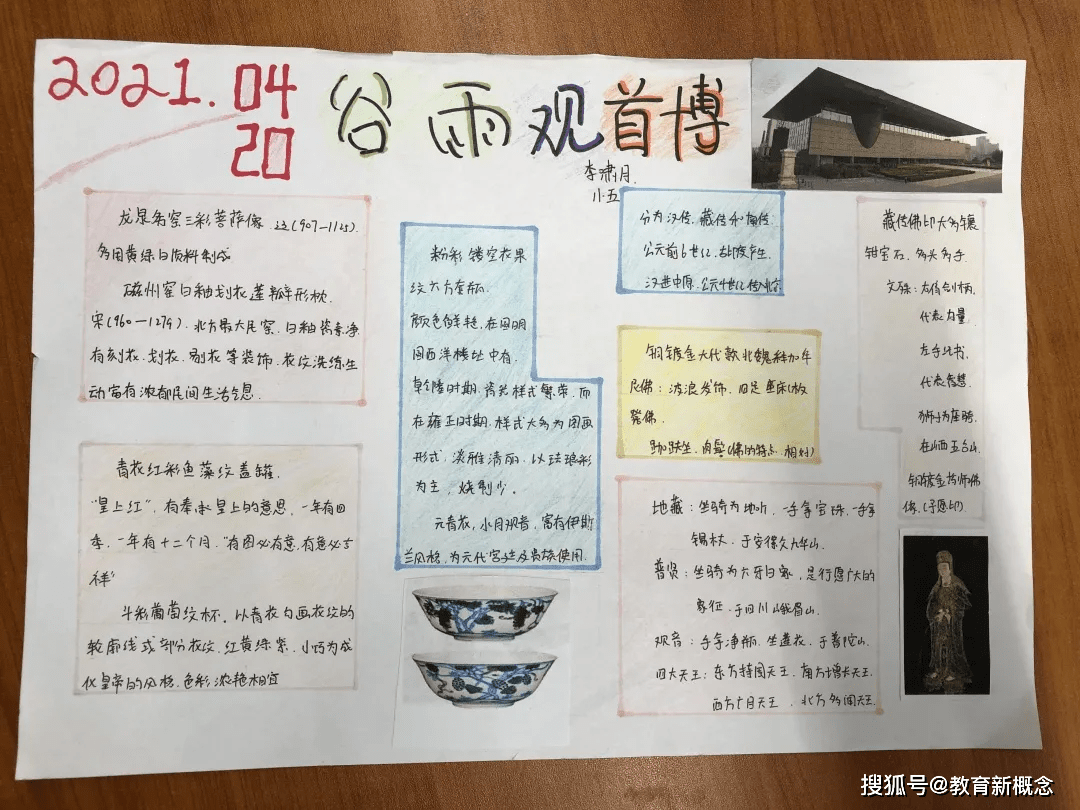 2021.04
20
谷雨观首博
李啸月
小五
龙泉务窑三彩菩萨像 辽(907—1125).
多用黄绿白原料制成
磁州窑白釉划花莲瓣形枕.
宋(960—1279). 北方最大民窑. 白釉瓷素净
有刻花、划花、剔花等装饰. 花纹洗练生
动富有浓郁民间生活气息.
青花红彩鱼藻纹盖罐.
“皇上红”, 有奉承皇上的意思, 一年有四
季, 一年有十二个月. “有图必有意, 有意必吉
祥”
斗彩葡萄纹杯. 以青花勾画花纹的
轮廓线或部分花纹. 红黄绿紫. 小巧为成
化皇帝的风格. 色彩浓艳相宜
粉彩镂空花果
纹六方套瓶.
颜色鲜艳. 在圆明
园西洋楼址中有.
乾隆时期. 瓷类样式繁荣. 而
在雍正时期. 样式大多为图画
形式. 淡雅清丽. 以珐琅彩
为主, 烧制少。
元青花, 水月观音, 富有伊斯
兰风格, 为元代宫廷及贵族使用.
分为汉传、藏传和南传.
公元前6世纪. 古印度产生.
汉进中原. 公元4世纪传入
铜镀金大代款北魏释加牟
尼佛: 波浪发饰.
发佛.
跏趺坐. 肉髻(佛的特点. 相对)
地藏: 坐骑为地听. 一手拿宝珠. 一手拿
锡杖. 于安徽九华山.
普贤: 坐骑为六牙白象. 是行愿广大的
象征. 于四川峨眉山.
观音: 手拿净瓶. 坐莲花. 于普陀山.
四大天王: 东方持国天王. 南方增长天王.
西方广目天王. 北方多闻天王.
藏传佛印大多镶
钳宝石. 多头多手.
文殊: 右侍剑柄.
代表力量.
左手比书.
代表智慧.
狮子为座骑.
在山西五台山.
铜镀金药师佛
像. (与愿印).
搜狐号@教育新概念